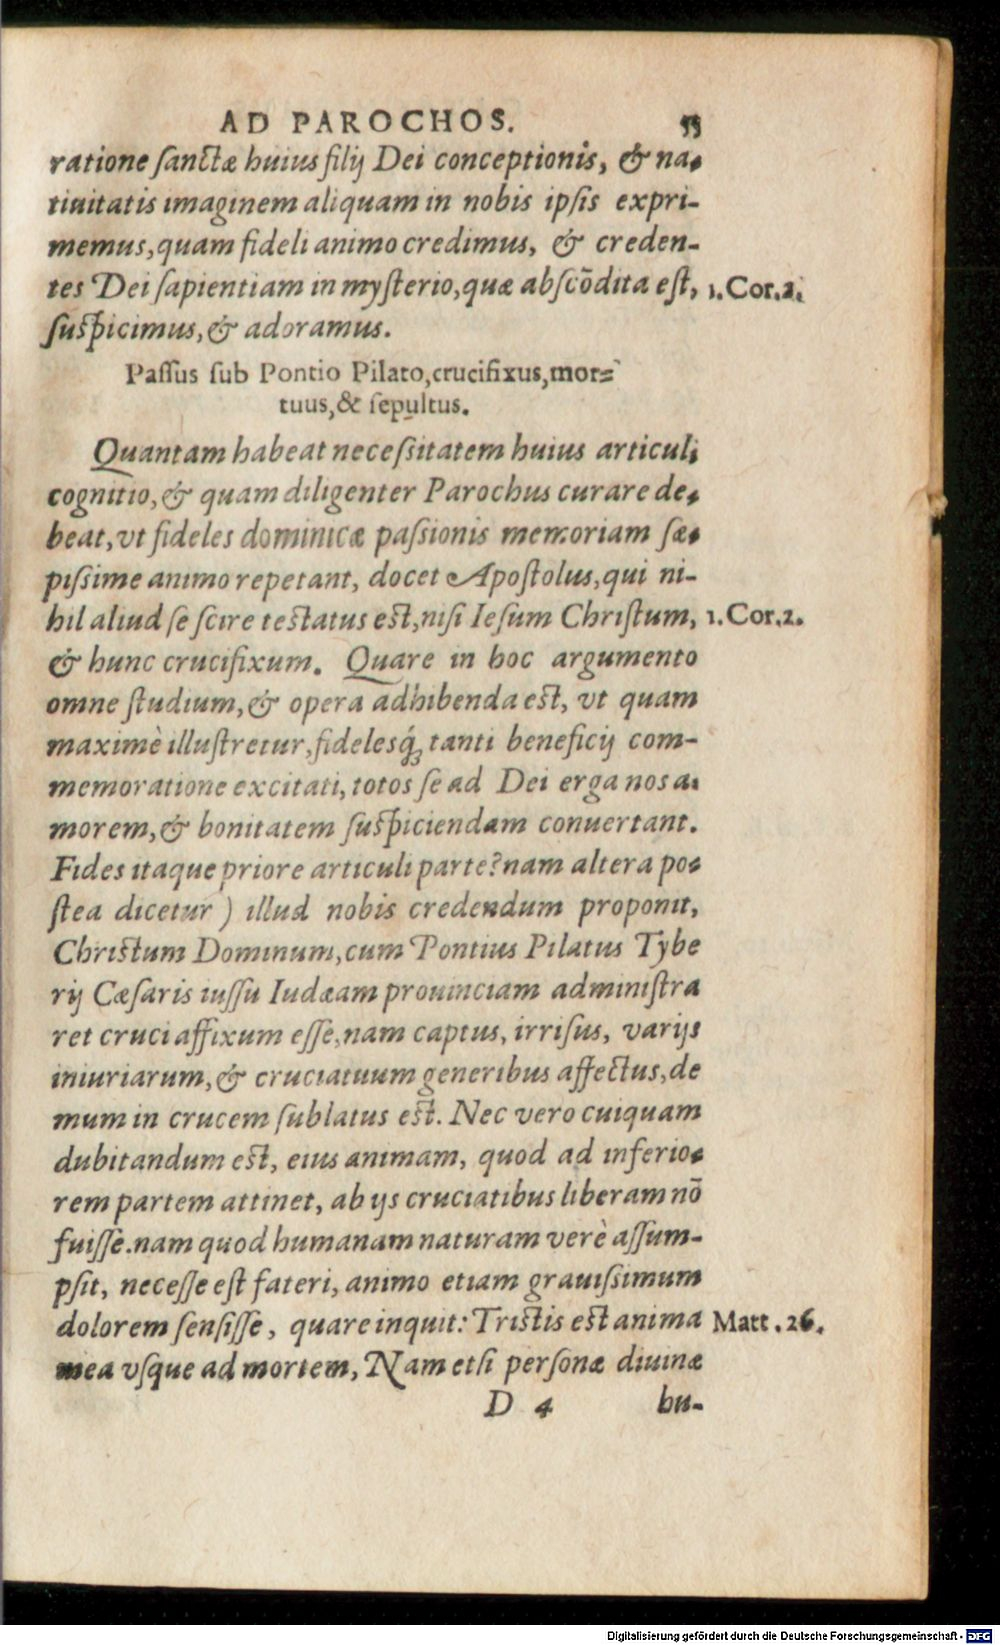 AD PAROCHOS. 55
ratione sanctæ huius filij Dei conceptionis, & na-
tiuitatis imaginem aliquam in nobis ipsis expri-
memus, quam fideli animo credimus, & creden-
tes Dei sapientiam in mysterio, quæ abscōdita est, 1.Cor.2.
suspicimus, & adoramus.
Passus sub Pontio Pilato, crucifixus, mor-
tuus, & sepultus.
Quantam habeat necessitatem huius articuli
cognitio, & quam diligenter Parochus curare de-
beat, vt fideles dominicæ passionis memoriam sæ-
pissime animo repetant, docet Apostolus, qui ni-
hil aliud se scire testatus est, nisi Iesum Christum, 1.Cor.2.
& hunc crucifixum. Quare in hoc argumento
omne studium, & opera adhibenda est, vt quam
maximè illustretur, fidelesq́; tanti beneficij com-
memoratione excitati, totos se ad Dei erga nos a-
morem, & bonitatem suspiciendam conuertant.
Fides itaque priore articuli parte? nam altera po-
stea dicetur) illud nobis credendum proponit,
Christum Dominum, cum Pontius Pilatus Tybe
rij Cæsaris iussu Iudæam prouinciam administra
ret cruci affixum esse, nam captus, irrisus, varijs
iniuriarum, & cruciatuum generibus affectus, de
mum in crucem sublatus est. Nec vero cuiquam
dubitandum est, eius animam, quod ad inferio-
rem partem attinet, ab ijs cruciatibus liberam nō
fuisse. nam quod humanam naturam verè assum-
psit, necesse est fateri, animo etiam grauissimum
dolorem sensisse, quare inquit: Tristis est anima Matt. 26.
mea vsque ad mortem, Nam etsi personæ diuinæ
D 4 hu-
Digitalisierung gefördert durch die Deutsche Forschungsgemeinschaft - DFG